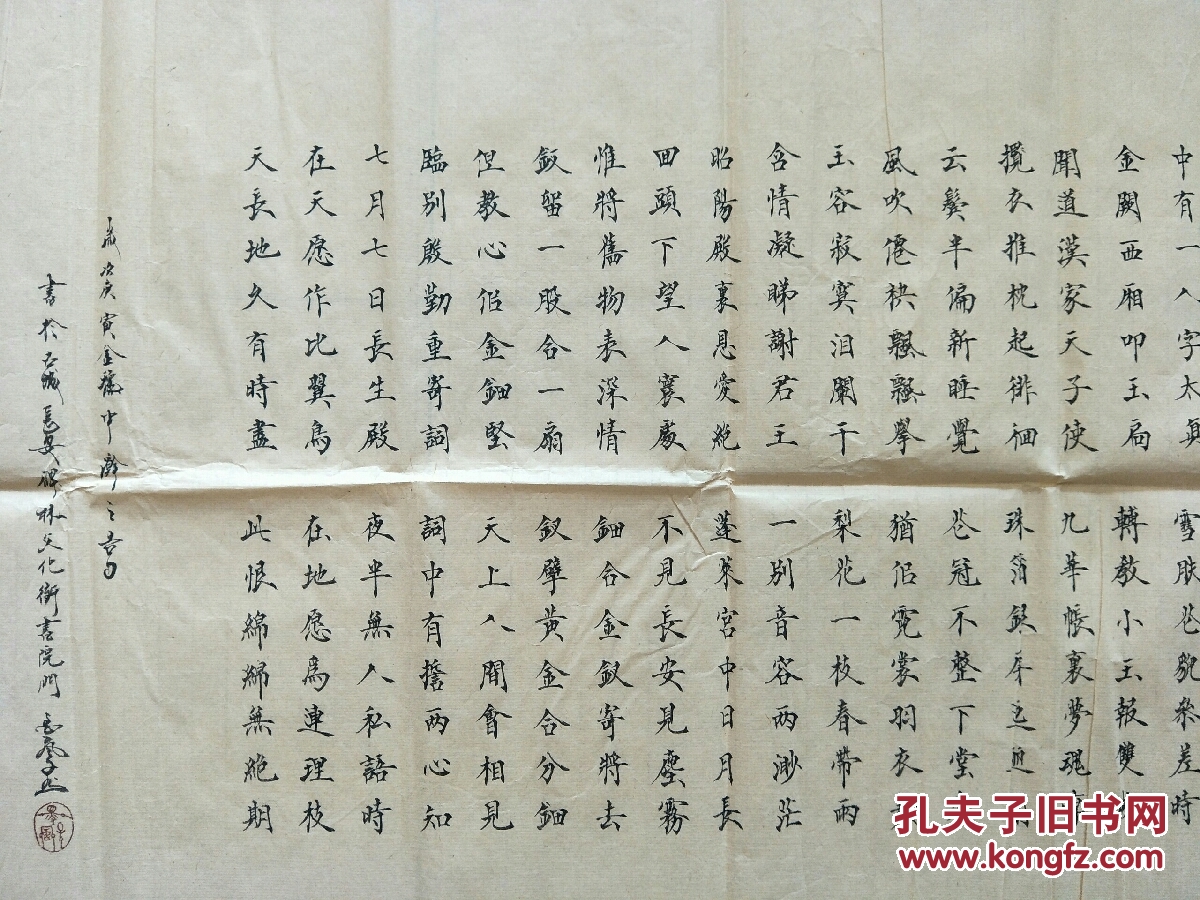 中有一人字太真 雪肤花貌叅差時
金闕西厢叩玉扃 轉教小玉報雙
聞道漢家天子使 九華帳裏夢魂
攬衣推枕起徘徊 珠箔銀屏
云鬓半偏新睡覺 花冠不整下堂
風吹僊袂飄飄擧 猶似霓裳羽衣
玉容寂寞泪闌干 梨花一枝春帶雨
含情凝睇謝君王 一别音容两渺茫
昭陽殿裏恩愛絶 蓬萊宮中日月長
回頭下望人寰處 不見長安見塵霧
惟將舊物表深情 鈿合金釵寄將去
釵留一股合一扇 釵擘黄金合分鈿
但教心似金鈿堅 天上人間會相見
臨别殷勤重寄詞 詞中有誓两心知
七月七日長生殿 夜半無人私語時
在天愿作比翼鳥 在地愿爲連理枝
天長地久有時盡 此恨綿綿無絶期
歲次庚寅金穗中澣之吉日
書於古城長安碑林文化街書院門
孔夫子旧书网
www.kongfz.com